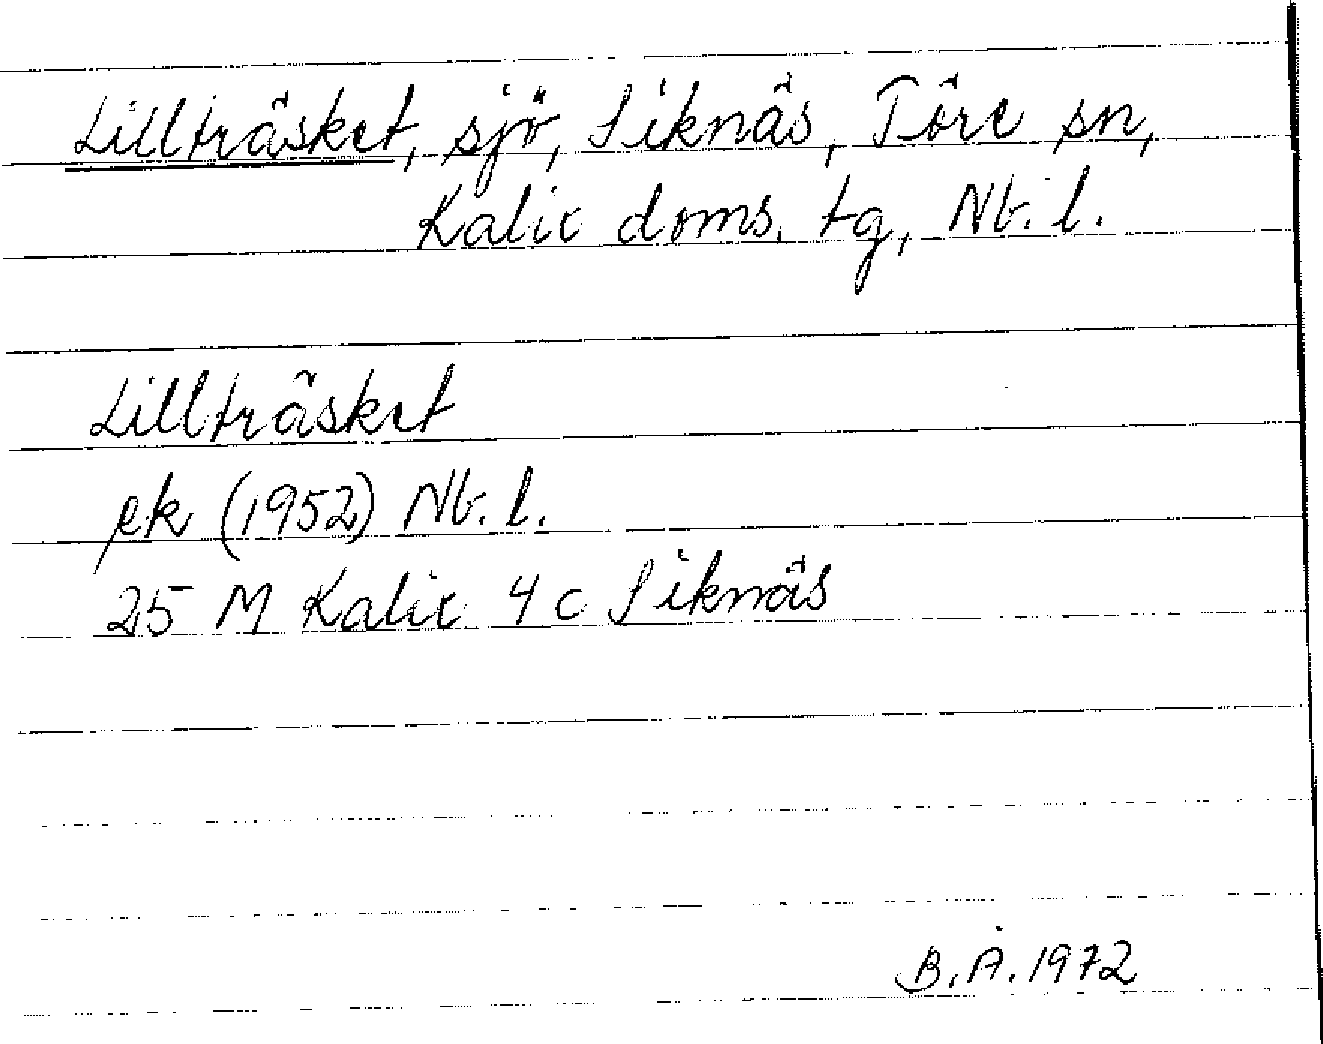 Lillträsket, sjö, Siknäs, Töre sn,
Kalix doms. tg, Nb. l.
Lillträsket
ek (1952) Nb. l.
25 M Kalix 4 c Siknäs
B. Å. 1972